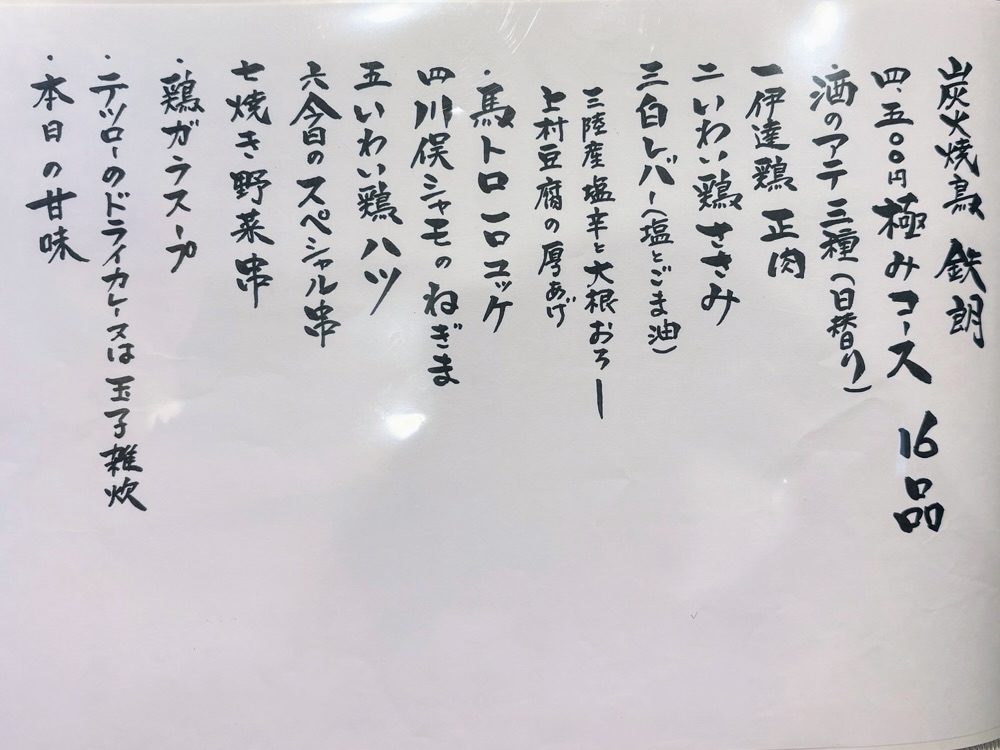 炭火焼鳥 鉄朗
四、五〇〇円 極みコース 16品
酒のアテ 三種(日替り)
一 伊達鶏 正肉
二 いわい鶏 ささみ
三 白レバー(塩とごま油)
三陸産 塩辛と大根おろし
上村豆腐の厚あげ
・馬トロ一口コロッケ
四 川俣シャモのねぎま
五 いわい鶏 ハツ
六 今日のスペシャル串
七 焼き野菜串
・鶏ガラスープ
・テツローのドライカレー又は玉子雑炊
・本日の甘味